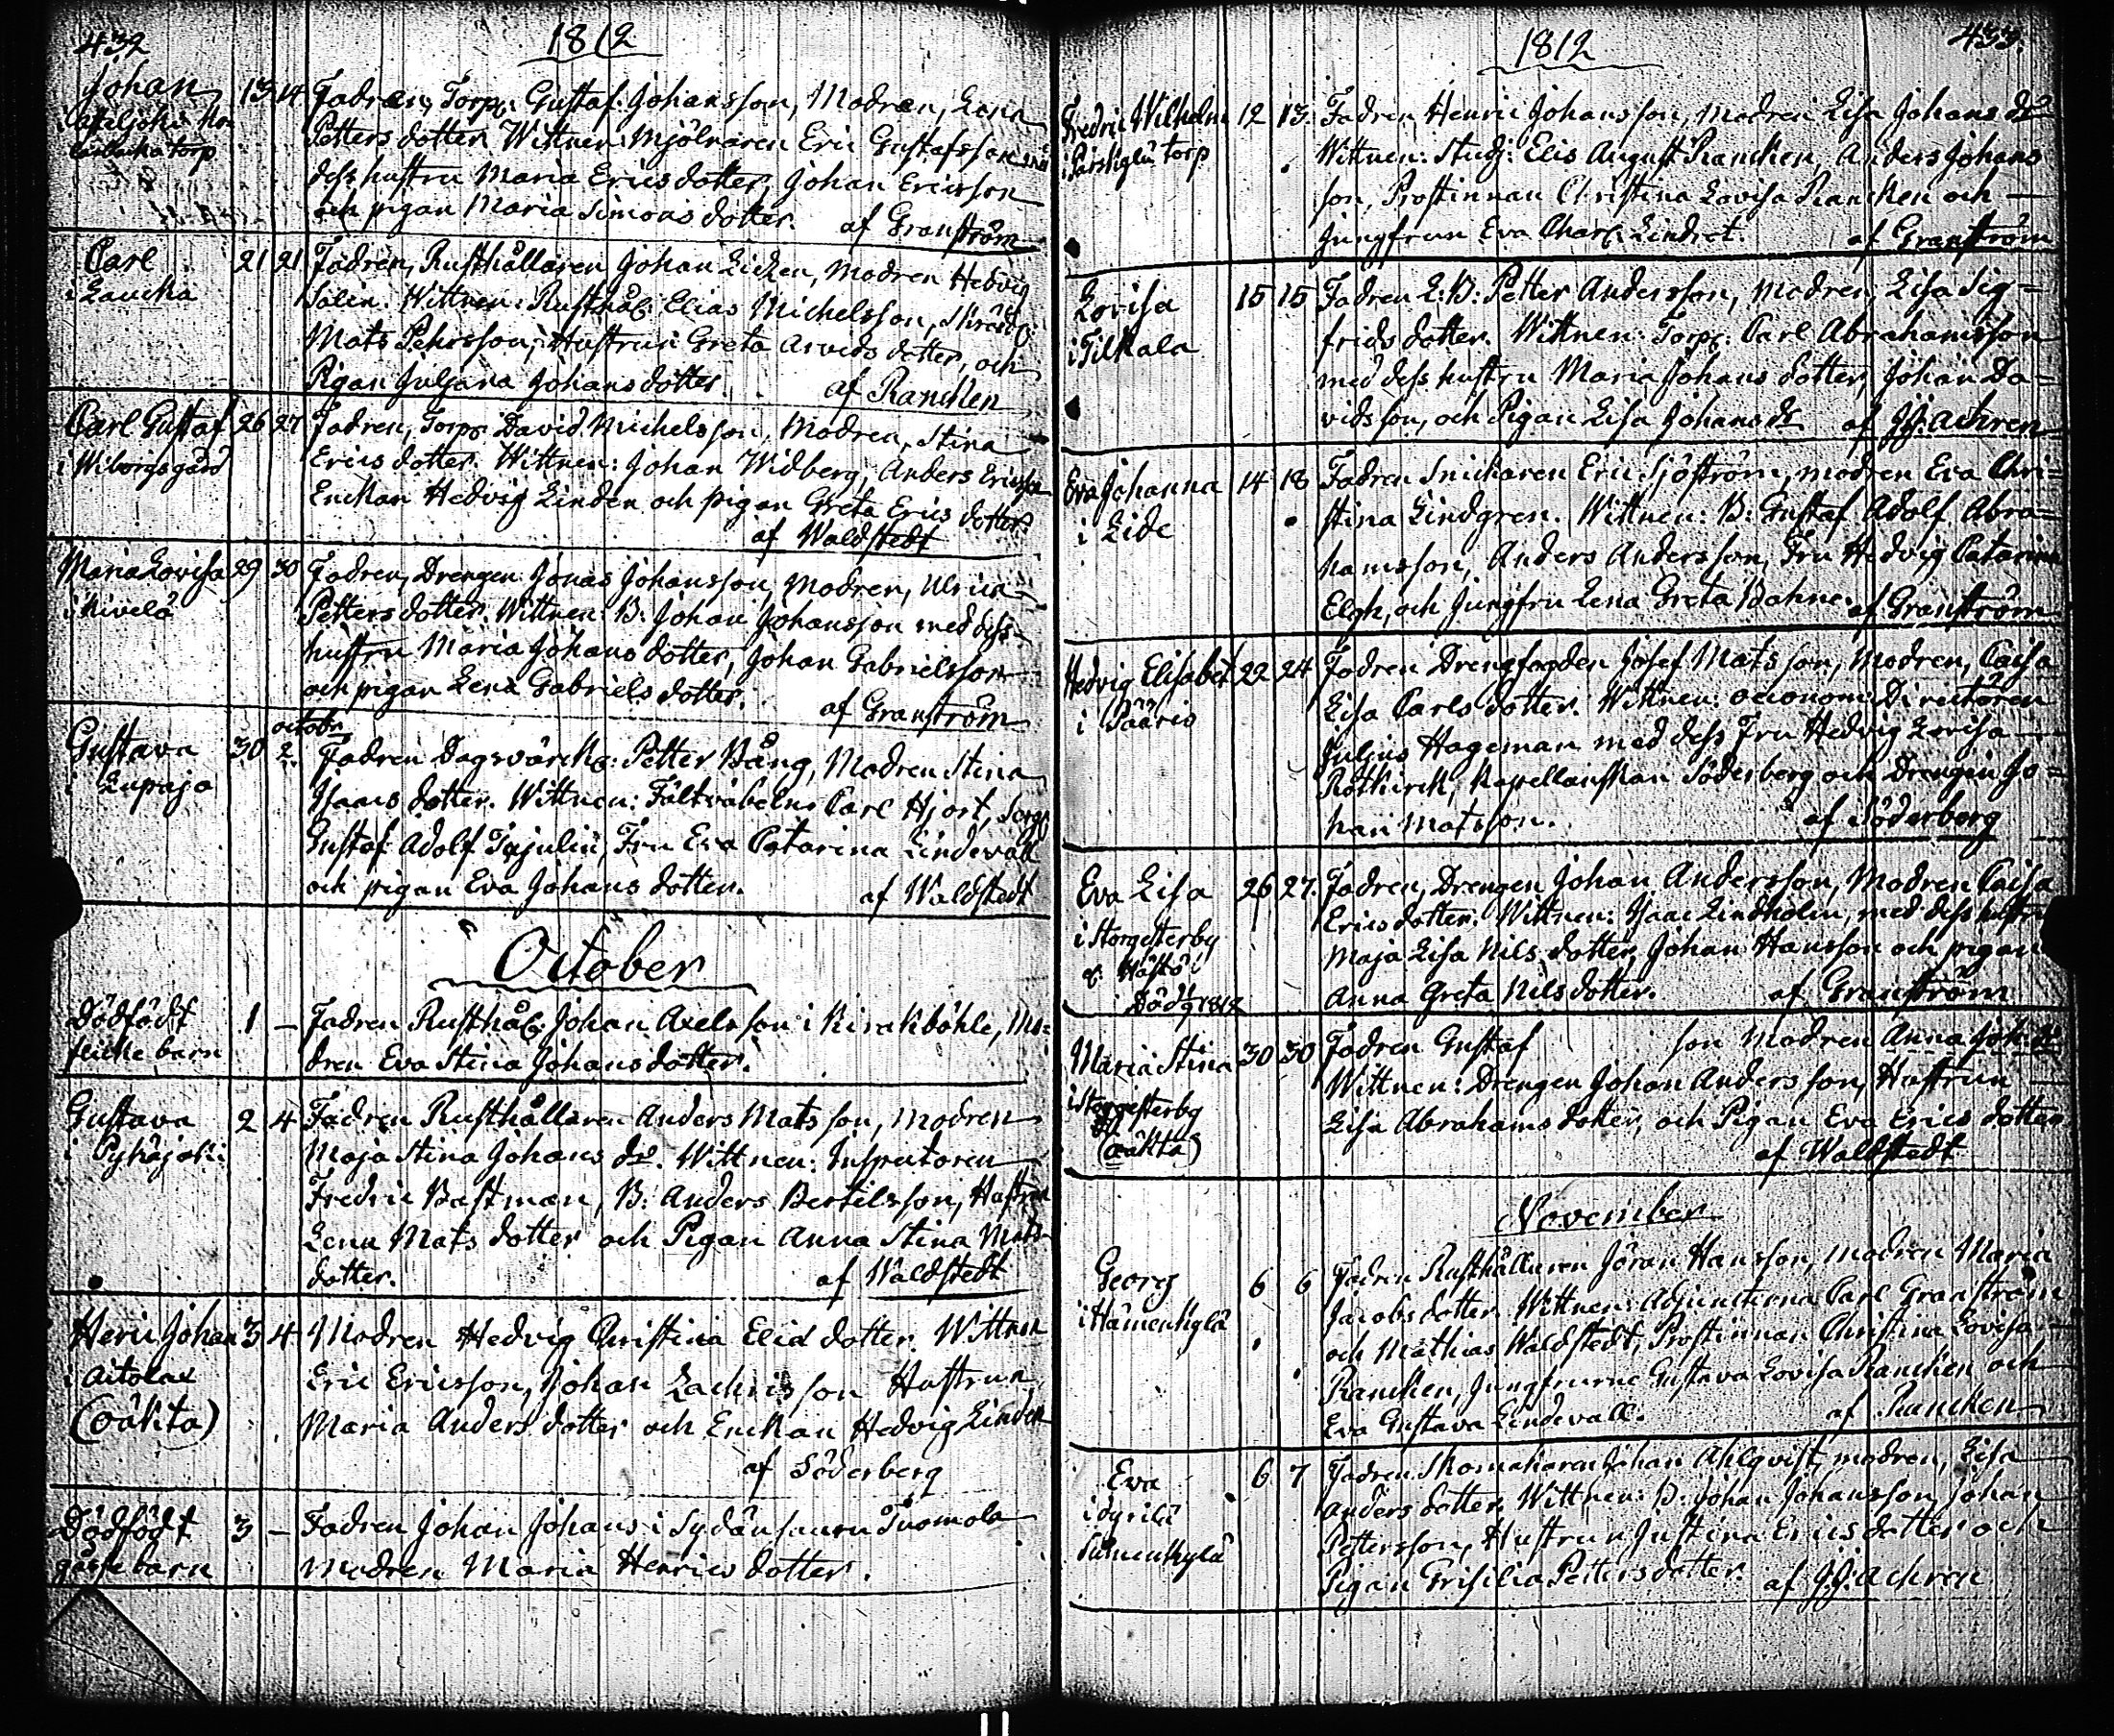 432
1812
Johan 13 14 Fadren, Torp: Gustaf Johansson, Modren, Lena
Petters dotter Wittnen: Mjölnaren Eric Gustafsson
torp
dess hustru Maria Erics dotter, Johan Ericsson
och pigan Maria Simons dotter. af Granström
Carl 21 21 Fadren, Rusthållaren Johan Licken, Modren Hedvig
i Laucka
Salin. Wittnen: Rusthål: Elias Michelsson,
Mats Pehrsson, Hustrun Greta Arvids dotter, och
Pigan Juljana Johans dotter. af Rancken
Carl Gustaf 26 27 Fadren, Torp: David Michelsson, Modren, Stina
i Wiborgsgård
Erics dotter. Wittnen: Johan Widberg, Anders Ericsson
Enckan Hedvig Linden och pigan Greta Erics dotter
af Waldstedt
Maria Lovisa 29 30 Fadren, Drengen Jonas Johansson, Modren, Ulrica
i Kivelä
Petters dotter. Wittnen: B: Johan Johansson med dess
hustru Maria Johans dotter, Johan Gabrielsson
och pigan Lena Gabriels dotter. af Granström
octobr
Gustava 30 2. Fadren Dagsvärck: Petter Bång, Modren Stina
i Lupaja
Isaacs dotter. Wittnen: Fältväbeln Carl Hjort, Serg:
Gustaf Adolf Tajulin, Fru Eva Catarina Lindevall
och pigan Eva Johans dotter. af Waldstedt
October
Dödfödt 1 – Fadren Rusthål: Johan Axelsson i Kirakböhle, Mo=
flicke barn
dren Eva Stina Johans dotter.
Gustava 2 4 Fadren Rusthållaren Anders Mats son, Modren
i Pyhäjoki
Maja Stina Johans dr. Wittnen: Inspectoren
Fredric Bastman, B: Anders Bertilsson, Hustrun
Lena Mats dotter och Pigan Anna Stina Mats
dotter. af Waldstedt
Henric Johan 3 4 Modren Hedvig Christina Elia dotter. Wittnen
i Aitolax
Eric Ericsson, Johan Zachrisson Hustrun
(oäkta)
Maria Anders dotter och Enckan Hedvig Linden
af Söderberg
Dödfödt 3 – Fadren Johan Johans i Sydänsauru Tuomola
gosse barn
Modren Maria Henrics dotter.
1812
433.
Fredric Wilhelm 12 13. Fadren Henric Johansson, Modren Lisa Johans dr
torp
Wittnen: Stud: Elis August Rancken, Anders Johans
son, Prostinnan Christina Lovisa Rancken och
Jungfrun Eva Charl: Lindret. af Granström
Lovisa 15 15 Fadren L: B: Petter Andersson, Modren, Lisa Sig=
i Tilkala
frids dotter. Wittnen: Torp: Carl Abrahamsson
med dess hustru Maria Johans dotter, Johan Da=
vidsson, och Pigan Lisa Johans dr af J:J: Achren
Eva Johanna 14 18 Fadren Snickaren Eric Sjöström, modren Eva Chri=
i Lide
stina Lindgren. Wittnen: B: Gustaf Adolf Abra=
hamsson, Anders Andersson, Fru Hedvig Catarina
Elgh, och Jungfru Lena Greta Bahne. af Granström
Hedvig Elisabet 22 24 Fadren Drengfogden Josef Mats son, Modren, Caisa
i Pääris
Lisa Carls dotter. Wittnen: oeconomi Directören
Julius Hageman med dess Fru Hedvig Lovisa
Rotkirch, Kapellanskan Söderberg och Drengen Jo=
han Matsson. af Söderberg
Eva Lisa 26 27. Fadren, Drengen Johan Andersson, Modren Caisa
i Storgesterby
Erics dotter. Wittnen: Isaac Lindholm, med dess hustru
Maja Lisa Nils dotter, Johan Hansson och pigan
Anna Greta Nils dotter. af Granström
Maria Stina 30 30 Fadren Gustaf son Modren Anna Joh: dr
Wittnen: Drengen Johan Anders son, Hustrun
(oäkta)
Lisa Abrahams dotter, och Pigan Eva Erics dotter
af Waldstedt
November
Georg 6 6 Fadren Rusthållaren Jöran Hansson, modren Maria
i Hämenkylä
Jacobs dotter. Wittnen: Adjuncterna Carl Granström
och Mathias Waldstedt, Prostinnan Christina Lovisa
Rancken, Jungfrurne Gustava Lovisa Rancken och
Eva Gustava Lindevall. af Rancken
Eva 6 7 Fadren Skomakaren Johan Ahlqvist, modren, Lisa
Anders dotter, Wittnen: B: Johan Johansson, Johan
Pettersson, Hustrun Justina Erics dotter och
Pigan Grisilia Petters dotter. af J:J: Achren